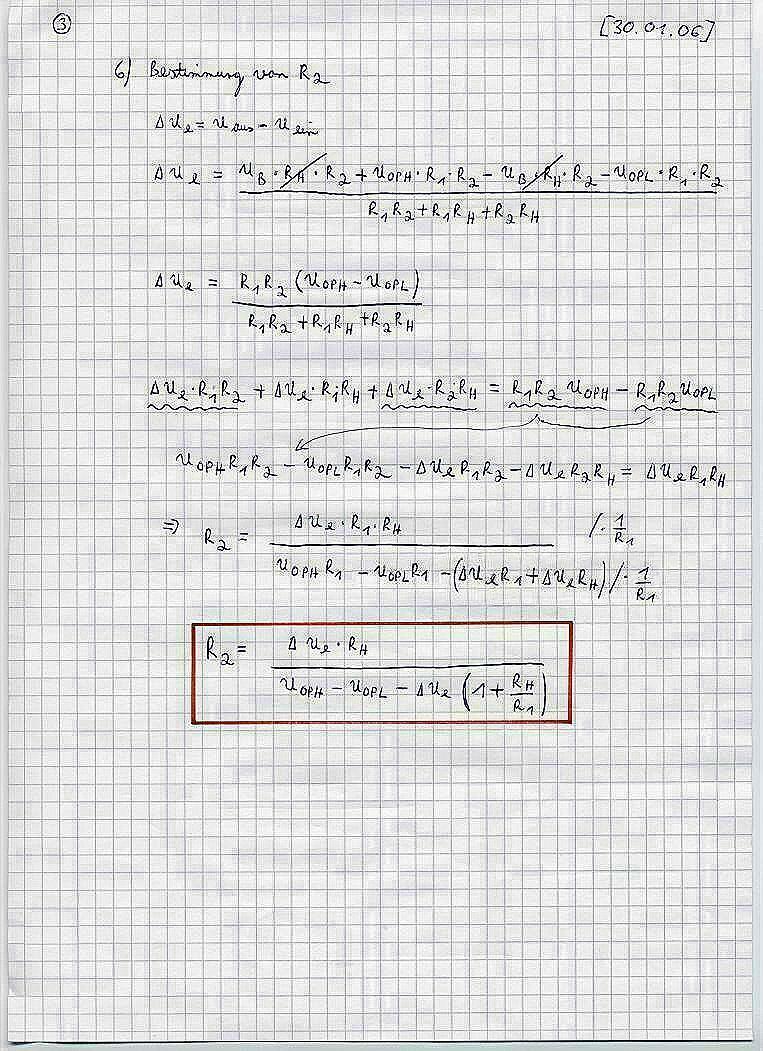 ③ [30.01.06]
6) Bestimmung von R₂
ΔUₑ = Uaus - Uein
ΔUₑ = (U_B · R_H · R₂ + U_OPH · R₁ · R₂ - U_B · R_H · R₂ - U_OPL · R₁ · R₂) / (R₁R₂ + R₁R_H + R₂R_H)
ΔUₑ = R₁R₂ (U_OPH - U_OPL) / (R₁R₂ + R₁R_H + R₂R_H)
ΔUₑ·R₁·R₂ + ΔUₑ·R₁·R_H + ΔUₑ·R₂·R_H = R₁R₂ U_OPH - R₁R₂ U_OPL
U_OPH R₁R₂ - U_OPL R₁R₂ - ΔUₑR₁R₂ - ΔUₑR₂R_H = ΔUₑR₁R_H
⇒ R₂ = ΔUₑ · R₁ · R_H /· 1/R₁
U_OPH R₁ - U_OPL R₁ - (ΔUₑR₁ + ΔUₑR_H) /· 1/R₁
R₂ = ΔUₑ · R_H / (U_OPH - U_OPL - ΔUₑ (1 + R_H/R₁))